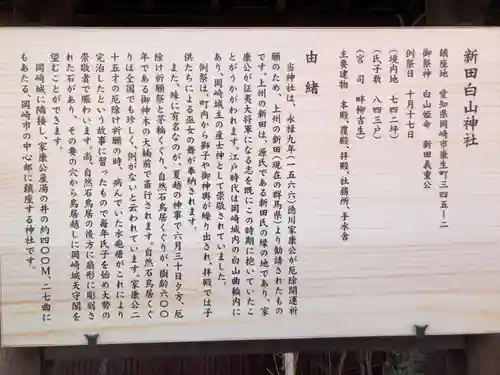 新田白山神社
鎮座地　愛知県岡崎市康生町三四五ー二
御祭神　白山姫命　新田義重公
例祭日　十月十七日
（境内地　七四二坪）
（氏子数　八四三戸）
（宮司　畔柳吉生）
主要建物　本殿、覆殿、拝殿、社務所、手水舎
由緒
当神社は、永禄九年（一五六六）徳川家康公が厄除開運祈
願のため、上州の新田（現在の群馬県）より勧請されたもの
です。上州の新田は、源氏である新田氏の縁の地であり、家
康公が征夷大将軍になる志を既にこの時期に抱いていたこ
とがうかがわれます。江戸時代は岡崎城内の白山曲輪内に
あり、岡崎城主の産土神として崇敬されていました。
例祭は、町内から獅子や御神輿が繰り出され、拝殿では子
供たちによる巫女の舞が奉納されます。
また、殊に有名なのが、夏越の神事で六月三十日夕方、厄
除け祈願祭と茅輪くぐり、自然石鳥居くぐりが、樹齢六〇〇
年である御神木の大楠前で斎行されます。自然石鳥居くぐ
りは全国でも珍しく、例がないと云われています。家康公二
十五才の厄除け祈願の時、病んでいた水疱瘡がこれにより
完治したという故事に習ったもので毎年氏子を始め大勢の
崇敬者で賑わいます。尚、自然石鳥居の後方に扇形に彫刻さ
れた石があり、その要の穴から鳥居越しに岡崎城天守閣を
望むことができます。
岡崎城に隣接し、家康公産湯の井の約四〇〇Ｍ、二七曲に
もあたる、岡崎市の中心部に鎮座する神社です。